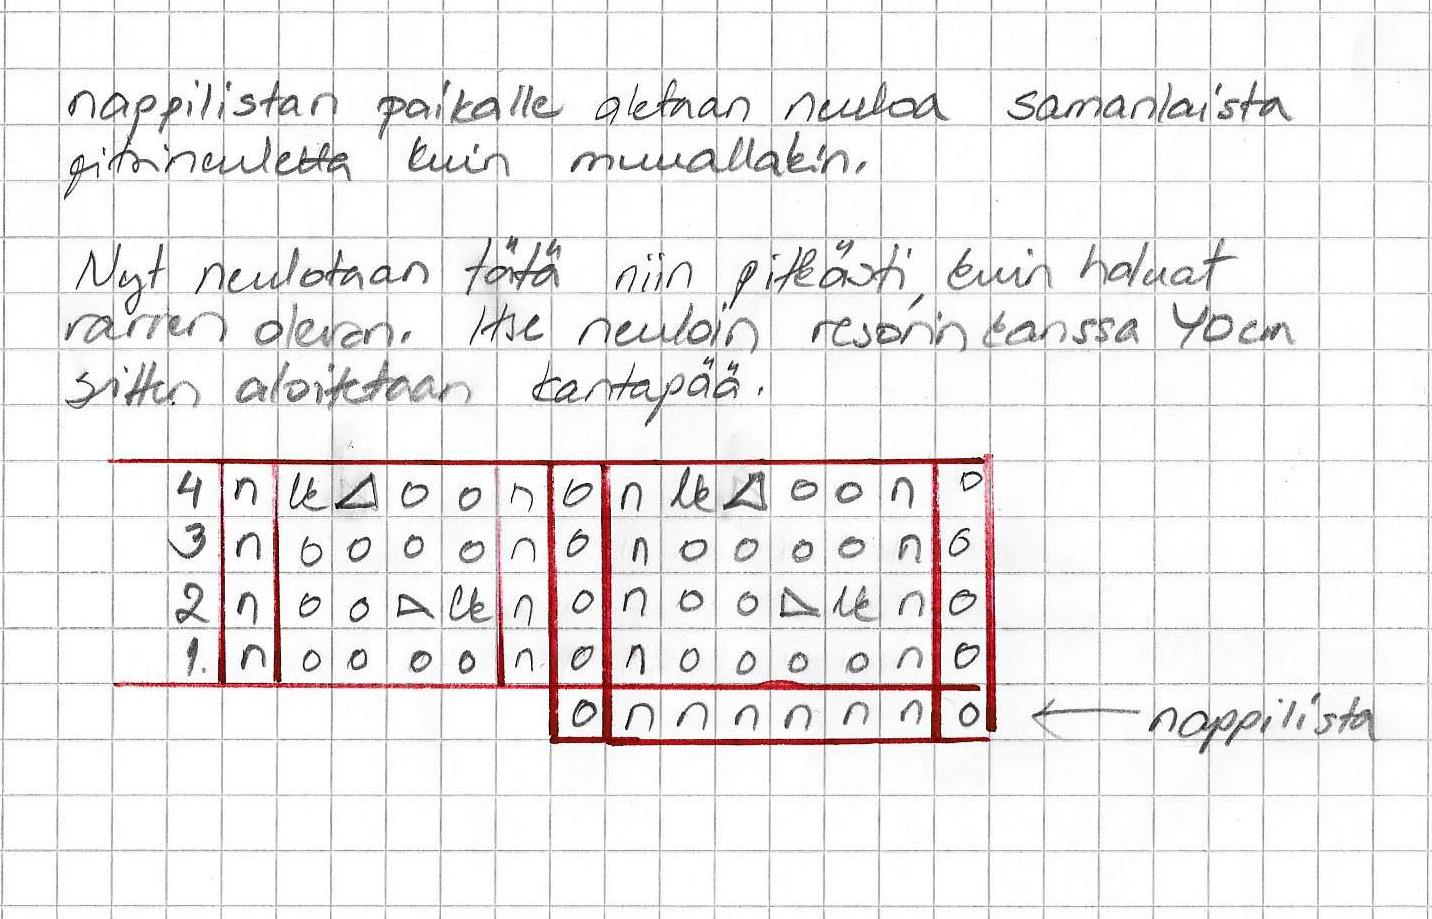 nappilistan paikalle aletaan neuloa samanlaista
pitsineuletta kuin muuallakin.
Nyt neulotaan tätä niin pitkästi, kuin haluat
varren olevan. Itse neuloin resorin kanssa 40cm
sitten aloitetaan kantapää.
4 n lk △ o o n o n lk △ o o n o
3 n o o o o n o n o o o o n o
2 n o o △ lk n o n o o △ lk n o
1. n o o o o n o n o o o o n o
o n n n n n n o ← nappilista